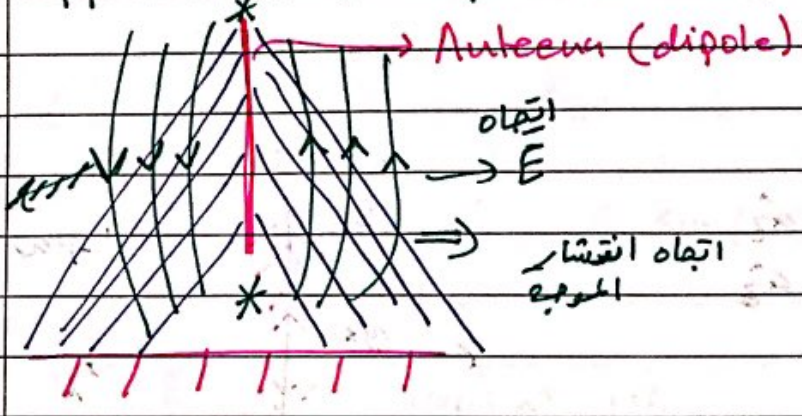 Anteena (dipole)
اتجاه
E
اتجاه انتشار
الموجه